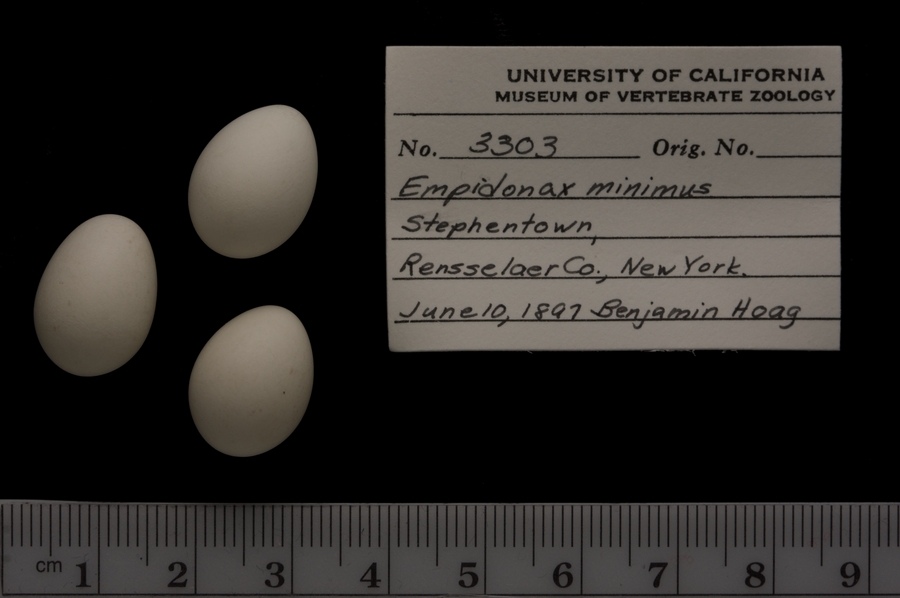 UNIVERSITY OF CALIFORNIA
MUSEUM OF VERTEBRATE ZOOLOGY
No. 3303 Orig. No.
Empidonax minimus
Stephentown,
Rensselaer Co., New York.
June 10, 1897 Benjamin Hoag
cm 1 2 3 4 5 6 7 8 9